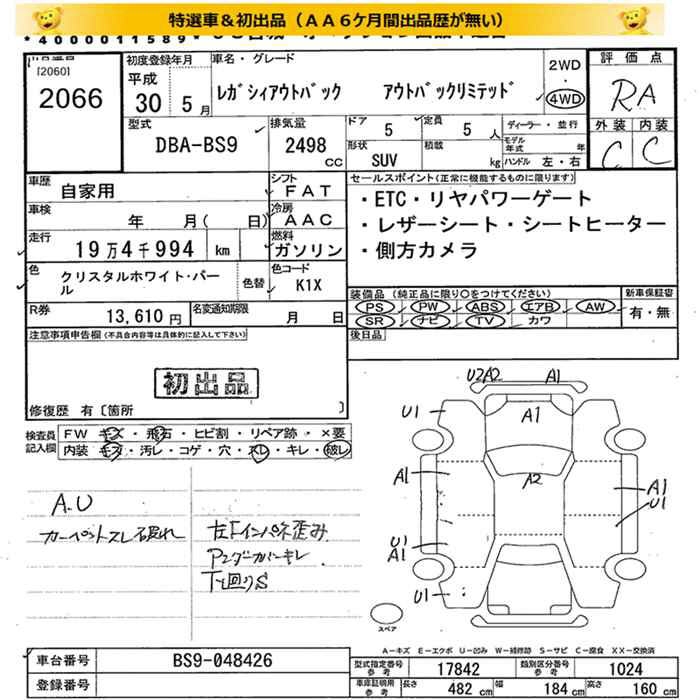 特選車＆初出品（ＡＡ６ケ月間出品歴が無い）
*4000011589*
[2060]
2066
初度登録年月
平成
30 5月
車名・グレード
ﾚｶﾞｼｨｱｳﾄﾊﾞｯｸ ｱｳﾄﾊﾞｯｸﾘﾐﾃｯﾄﾞ
2WD
・
4WD
評価点
RA
外装 内装
C C
型式
DBA-BS9
排気量
2498
CC
ドア 5
定員 5 人
形状 SUV
積載 kg
ディーラー・並行
モデル年式 年
ハンドル 左・右
車歴
自家用
シフト
FAT
車検
年 月( 日)
冷房
AAC
走行
19万4千994 km
燃料
ガソリン
色
クリスタルホワイト・パール
色替
色コード
K1X
R券
13,610 円
名変通知期限
月 日
セールスポイント(正常に機能するものに限ります)
・ETC・リヤパワーゲート
・レザーシート・シートヒーター
・側方カメラ
装備品 (純正品に限り○をつけてください)
PS PW ABS エアB AW
SR ナビ TV カワ
新車保証書
有・無
後日品
注意事項申告欄(不具合内容等は具体的に記入して下さい)
初出品
修復歴 有〔箇所 〕
検査員
記入欄
FW キズ・飛石・ヒビ割・リペア跡・×要
内装 キズ・汚レ・コゲ・穴・スレ・キレ・破レ
A.U
カーペットスレ破れ
左Fインパネ歪み
下回りS
U2A2 A1
U1 A1
A1 A2 A1
U1
U1
A1
U1
スペア
A－キズ E－エクボ U－凹み W－補修跡 S－サビ C－腐食 XX－交換済
車台番号
BS9-048426
登録番号
型式指定番号
参考
17842
類別区分番号
参考
1024
車庫証明用
参考
長さ 482 cm 幅 184 cm 高さ 160 cm